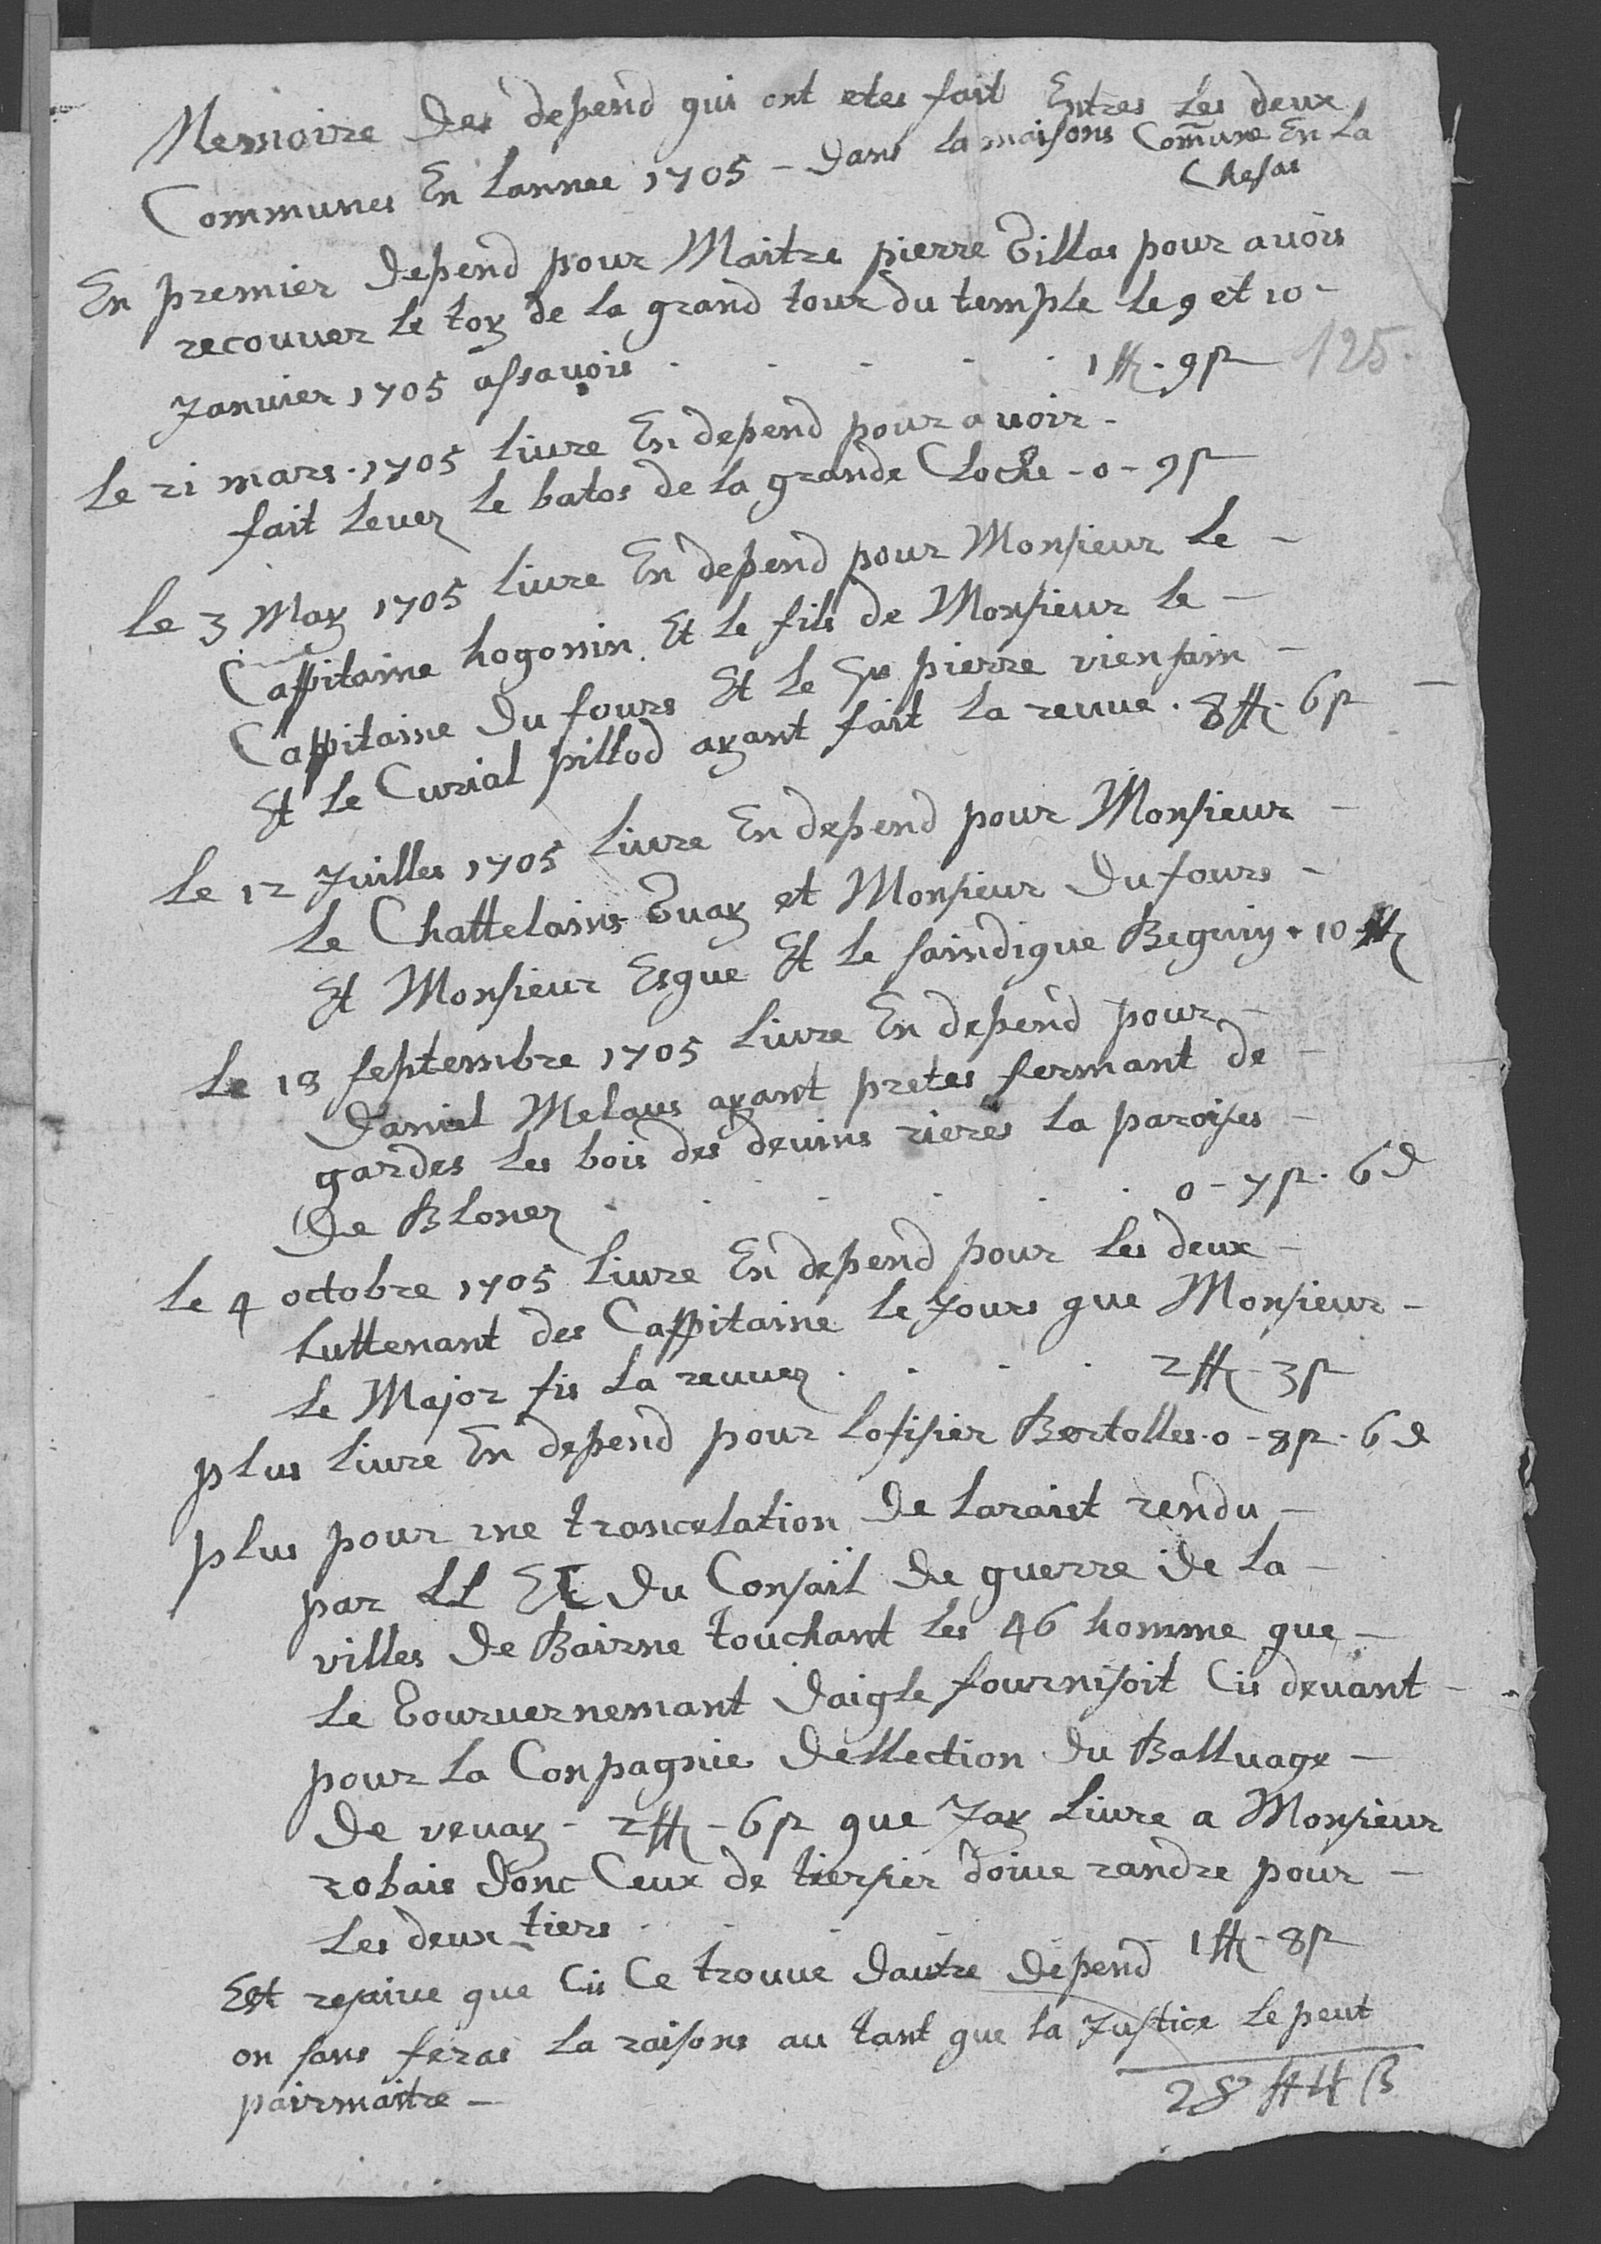 Memoire des depend qui ont etes fait Entres Les deux
Communes En Lannee 1705 - dans la maisons Comune En La
Chesas
En premier depend pour Maitre pierre Gillas pour auoir
recouuer le toy de la grand tour du temple le 9 et 10 -
Januier 1705 assauoir . . . . . 1 ff. 9 ß
125.
Le 21 mars. 1705 liure En depend pour auoir -
fait leuer le batos de la grande Cloche - 0 - 9 ß
Le 3 May 1705 liure En depend pour Monsieur Le -
Cappitaine hogonin Et le fils de Monsieur le -
Cappitaine du fours Et le Sr pierre viensain -
Et le Curial pillod ayant fait la reuue . 8 ff. 6 ß
Le 12 Juilles 1705 liure En depend pour Monsieur -
Le Chattelains Guay et Monsieur du fours -
Et Monsieur Esgue Et le saindique Beguin . 10 ff
Le 13 septembre 1705 liure En depend pour -
daniel Melaus ayant pretes sermant de -
gardes les bois des deuins rieres la paroises -
de Blonez . . . . . . 0 - 7 ß. 6 d
Le 4 octobre 1705 liure En depend pour les deux -
Luttenant des Cappitaine le Jours que Monsieur -
Le Major fis la reuuez . . . . 2 ff. 3 ß
plus liure En depend pour lofisier Bertolles . 0 - 8 ß. 6 d
plus pour une trancelation de laraist rendu -
par LL EE du Consail de guerre de la -
villes de Bairne touchant les 46 homme que -
Le Gouruernemant daigle fournisoit Cis deuant -
pour la Conpagnie dellection du Balluage -
de veuay - 2 ff - 6 ß que Jay liure a Monsieur
robais donc Ceux de tiersier doiue randre pour -
les deux tiers . . . . . 1 ff - 8 ß
Est resaiue que Cis Ce trouue dautre depend
on sans feras la raisons au tant que la Justice le peut
pairmaitre -
28 ff 4 ß